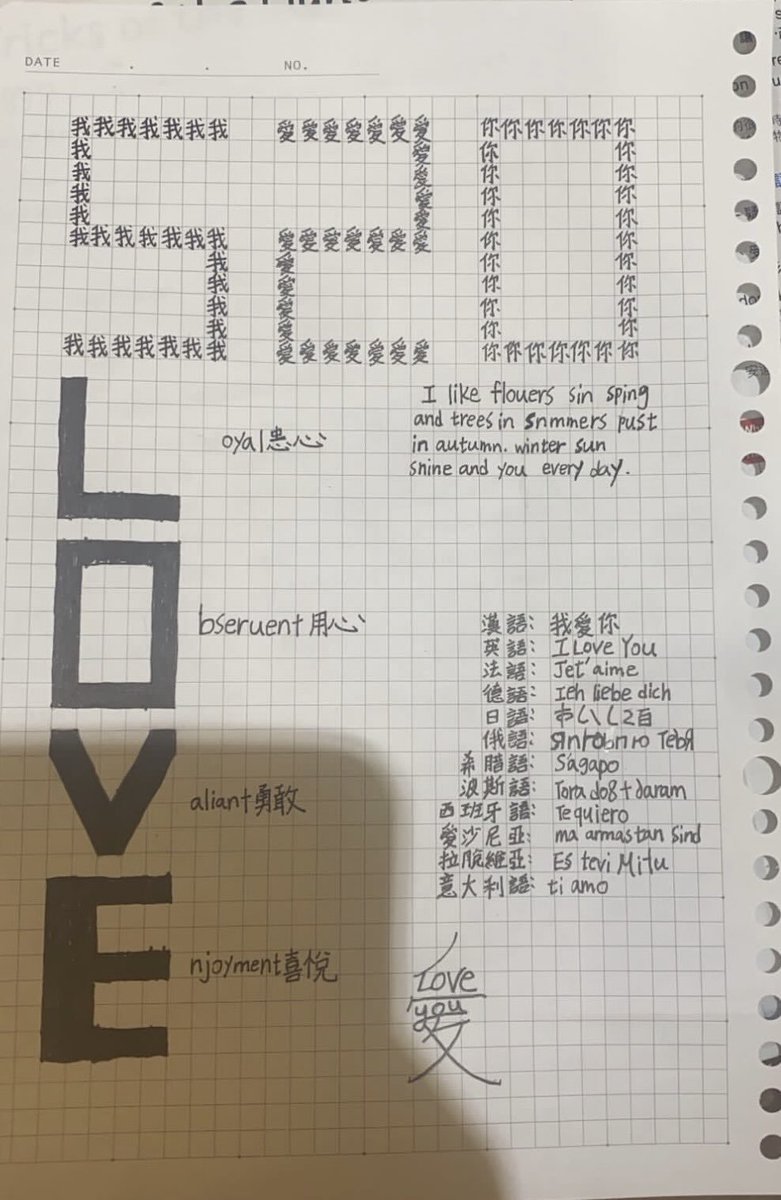 DATE . . NO.
我我我我我我我 愛愛愛愛愛愛愛 你你你你你你你
我 愛 你 你
我 愛 你 你
我 愛 你 你
我 愛 你 你
我我我我我我我 愛愛愛愛愛愛愛 你 你
我 愛 你 你
我 愛 你 你
我 愛 你 你
我 愛 你 你
我我我我我我我 愛愛愛愛愛愛愛 你你你你你你你
Loyal患心
Obseruent用心
Valiant勇敢
Enjoyment喜悅
I like flouers sin sping
and trees in snmmers pust
in autumn. winter sun
snine and you every day.
漢語: 我愛你
英語: I Love You
法語: Jet'aime
德語: Ieh liebe dich
日語:
俄語: Тебя
希腊語: Ságapo
波斯語: Tora do8t daram
西班牙語: Te quiero
愛沙尼亞: ma armastan Sind
拉脫維亞: Es tevi Milu
意大利語: ti amo
Love
you